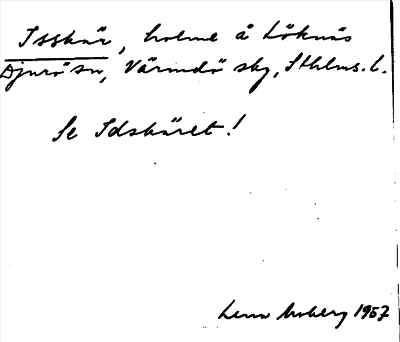 Isskär, holme å Löknäs
Djurö sn, Värmdö sky, Sthlms. l.
Se Idskäret!
Lena Moberg 1957